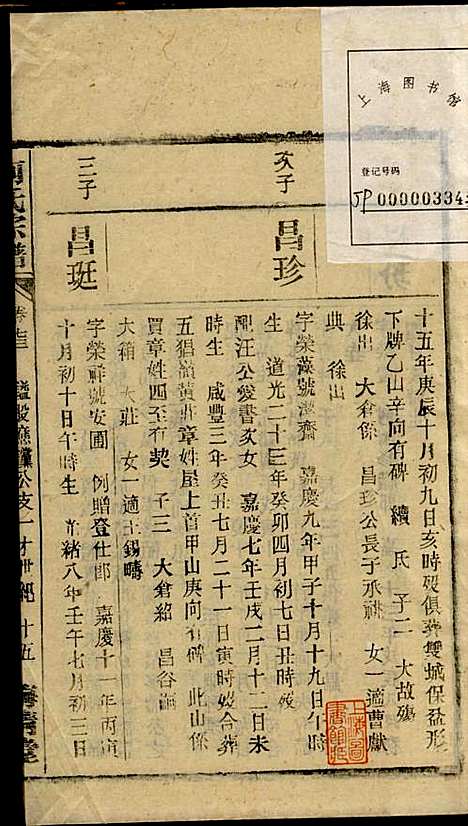 上海图书馆
登记号码
JP 00000334
十五年庚辰十月初九日亥時歿俱葬雙城保盆形
下牌乙山辛向有碑 續 氏 子二 大故殤
徐出 大倉係 昌珍公長子承祧 女一適曹獻
典 徐出
次子
昌珍
字榮藻號潔齋 嘉慶九年甲子十月十九日午時
生 道光二十三年癸卯四月初七日丑時歿
配汪公愛書次女 嘉慶七年壬戌二月十二日未
時生 咸豐三年癸丑七月二十一日寅時歿合葬
五猖嶺黃莊章姓屋上首甲山庚向有碑 此山係
買章姓四至有契 子三 大倉紹 昌谷
大箱 大莊 女一適王錫疇
三子
昌珽
字榮祥號安圃 例贈登仕郎 嘉慶十一年丙寅
十月初十日午時生 光緒八年壬午七月初三日
氏宗譜
卷三
公支一 世 十五
上海圖書館藏